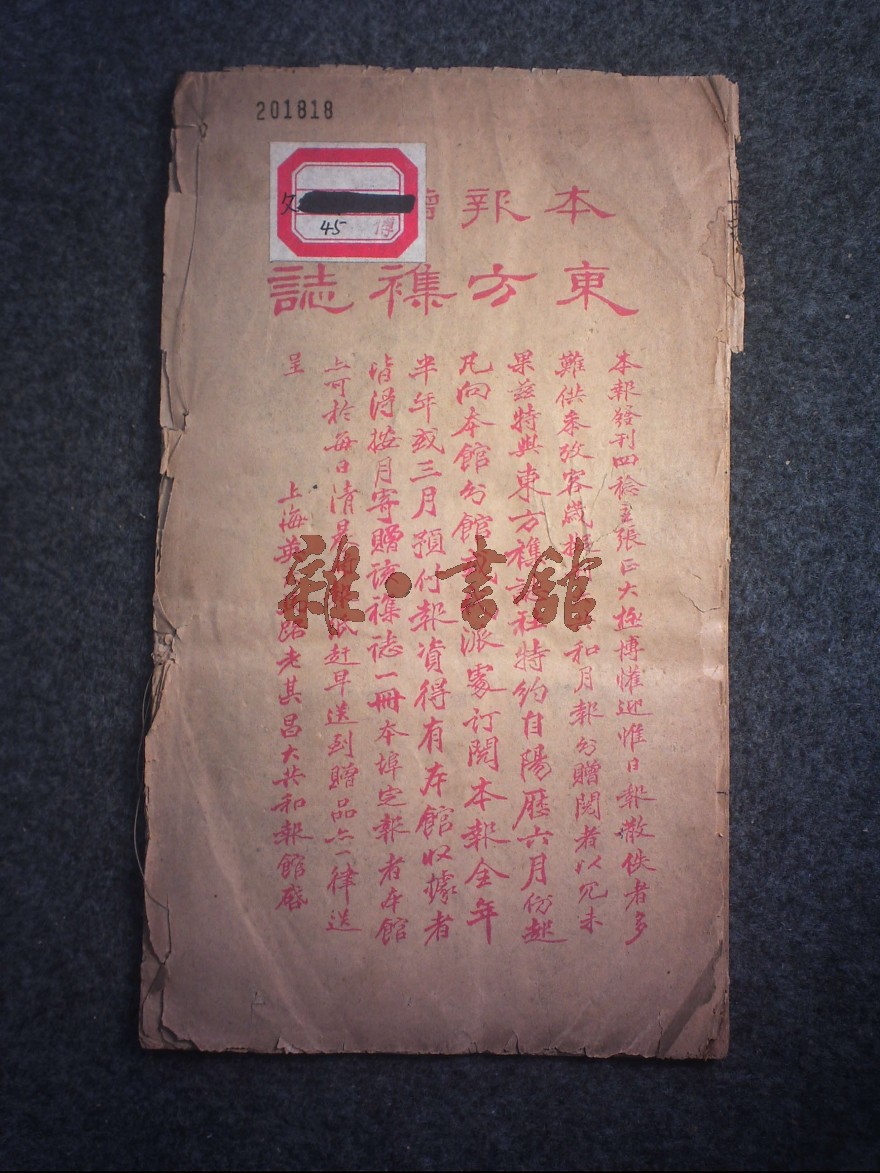 201818
45
本報贈
東方襍誌
本報發刊四稔主張正大極博懽迎惟日報散佚者多
難供參攷客歲 和月報分贈閱者以冗未
果茲特與東方襍誌社特約自陽曆六月份起
凡向本館分館或 派處訂閱本報全年
半年或三月預付報資得有本館收據者
皆得按月寄贈該襍誌一冊本埠定報者本館
並可於每日清晨 趕早送到贈品亦一律送
呈
上海 路老其昌大共和報館啓
雜·書館